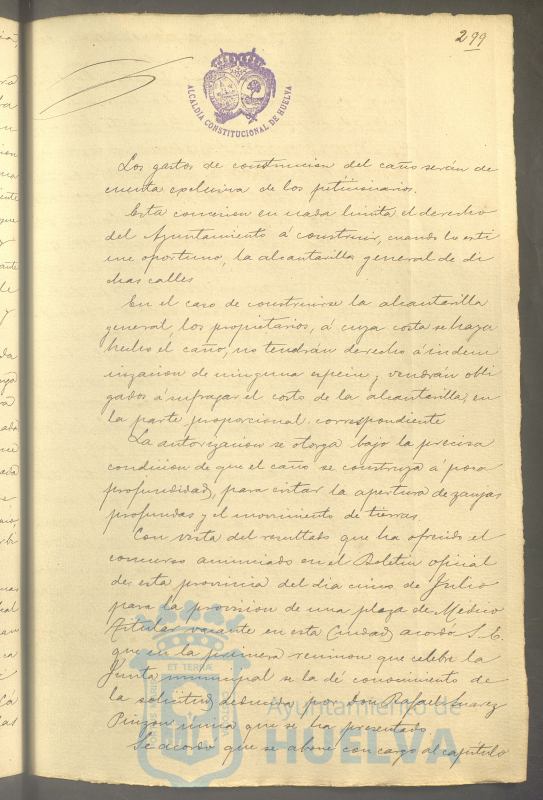 299
ALCALDIA CONSTITUCIONAL DE HUELVA
Los gastos de construccion del caño serán de
cuenta exclusiva de los peticionarios.
Esta concesion en nada limita el derecho
del Ayuntamiento á construir, cuando lo esti
me oportuno, la alcantarilla general de di
chas calles
En el caso de construirse la alcantarilla
general los propietarios, á cuya costa se haya
hecho el caño, no tendrán derecho á indem
nizacion de ninguna especie, y vendrán obli
gados á sufragar el costo de la alcantarilla, en
la parte proporcional correspondiente
La autorizacion se otorga bajo la precisa
condicion de que el caño se construya á poca
profundidad, para evitar la apertura de zanjas
profundas y el movimiento de tierras.
Con vista del resultado que ha ofrecido el
concurso anunciado en el Boletin oficial
de esta provincia del dia cinco de Julio
para la provision de una plaza de Medico
titular vacante en esta Ciudad, acordó S. E.
que en la primera reunion que celebre la
Junta municipal se la dé conocimiento de
la solicitud deducida por don Rafael Suarez
Pinzon unica que se ha presentado
Se acordó que se abone con cargo al capitulo
ET TERRAE
Ayuntamiento de
HUELVA